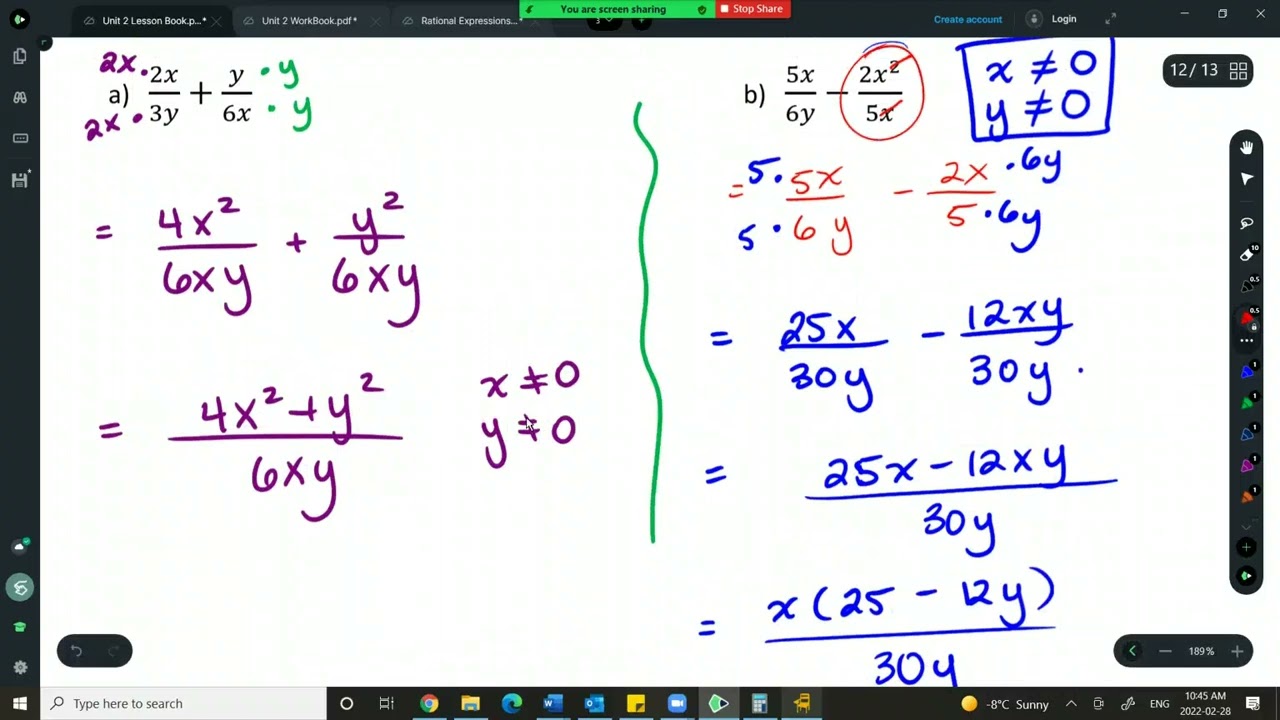 Unit 2 Lesson Book.p...*
Unit 2 WorkBook.pdf*
Rational Expressions...*
You are screen sharing
Stop Share
3
Create account
Login
12 / 13
2x · 2x/3y · 2x + y/6x · y · y
a)
= 4x²/6xy + y²/6xy
= (4x²+y²)/6xy
x ≠ 0
y ≠ 0
b) 5x/6y − 2x²/5x
x ≠ 0
y ≠ 0
= 5 · 5x / 5 · 6y − 2x · 6y / 5 · 6y
= 25x/30y − 12xy/30y .
= (25x − 12xy)/30y
= x(25 − 12y)/30y
10
0.5
0.5
1
1
1
1
1
189%
Type here to search
-8°C Sunny
ENG
10:45 AM
2022-02-28